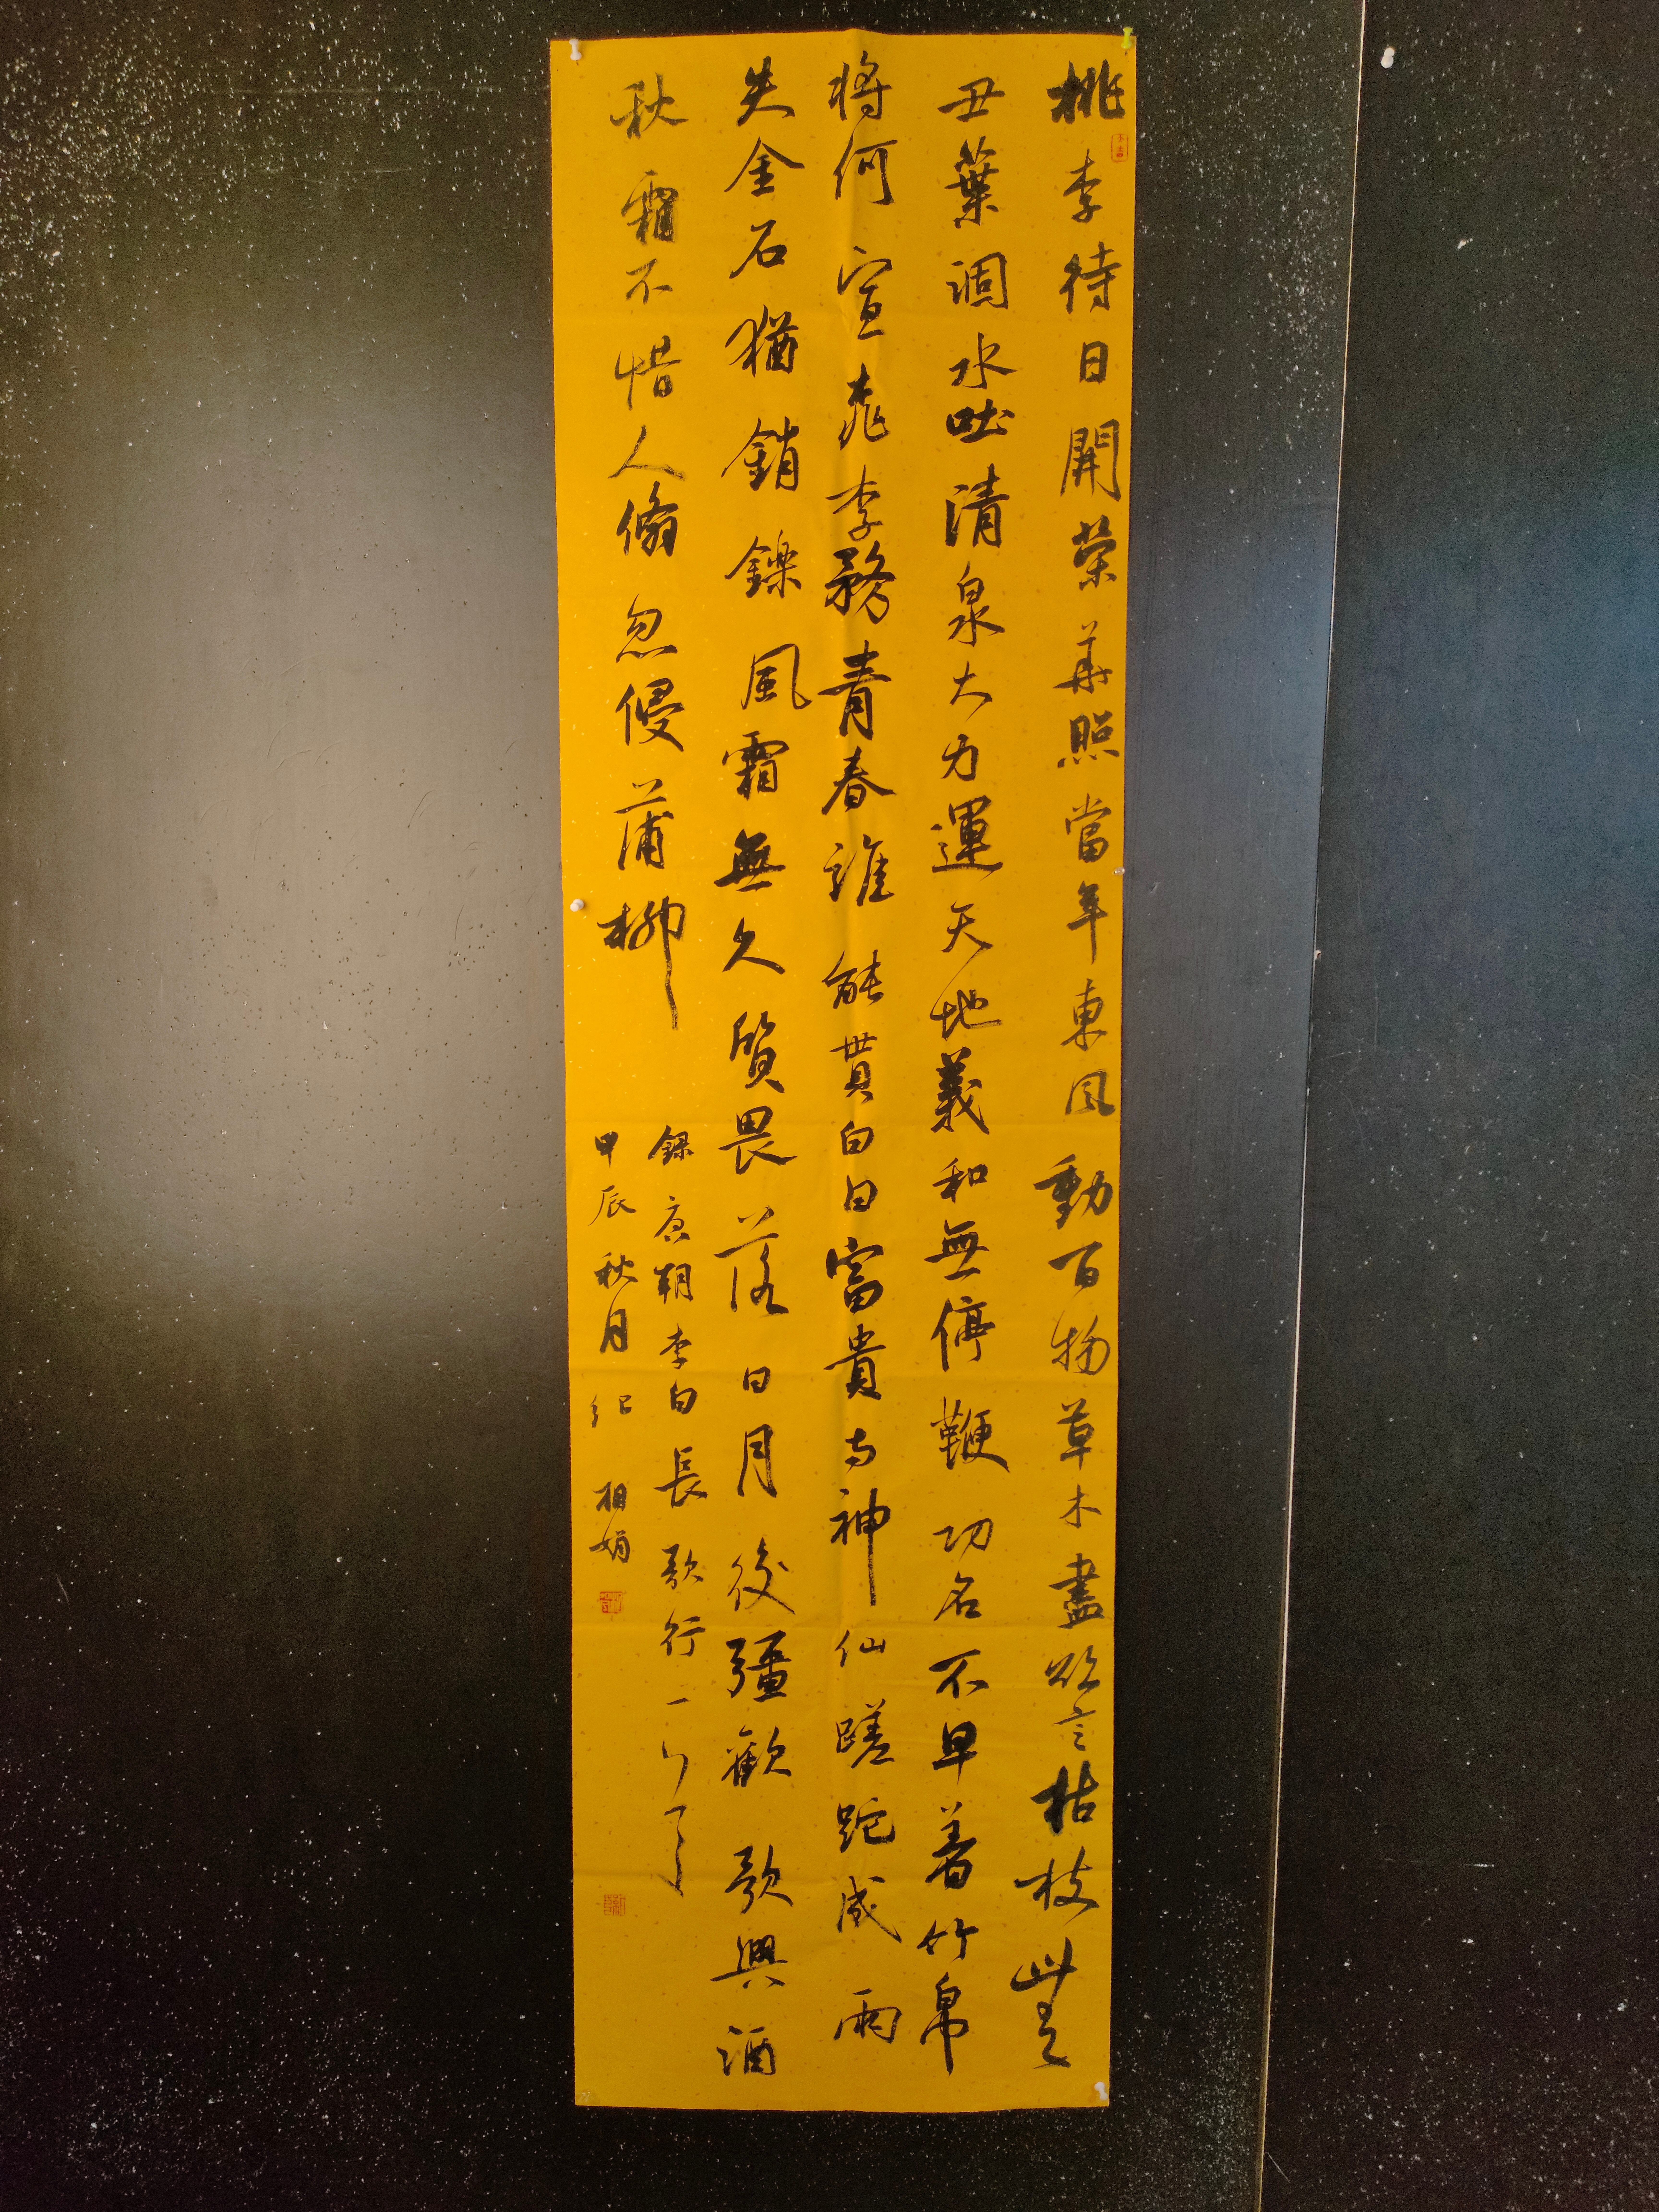 桃李待日開榮華照當年東風動百物草木盡欲言枯枝無
丑葉涸水吐清泉大力運天地義和無停鞭功名不早着竹帛
將何宣桃李務青春誰能貰白日富貴与神仙蹉跎成兩
失金石猶銷鑠風霜無久質畏落日月後彊歡歌與酒
秋霜不惜人倏忽侵蒲柳
錄唐朝李白長歌行一
甲辰秋月紀相娟